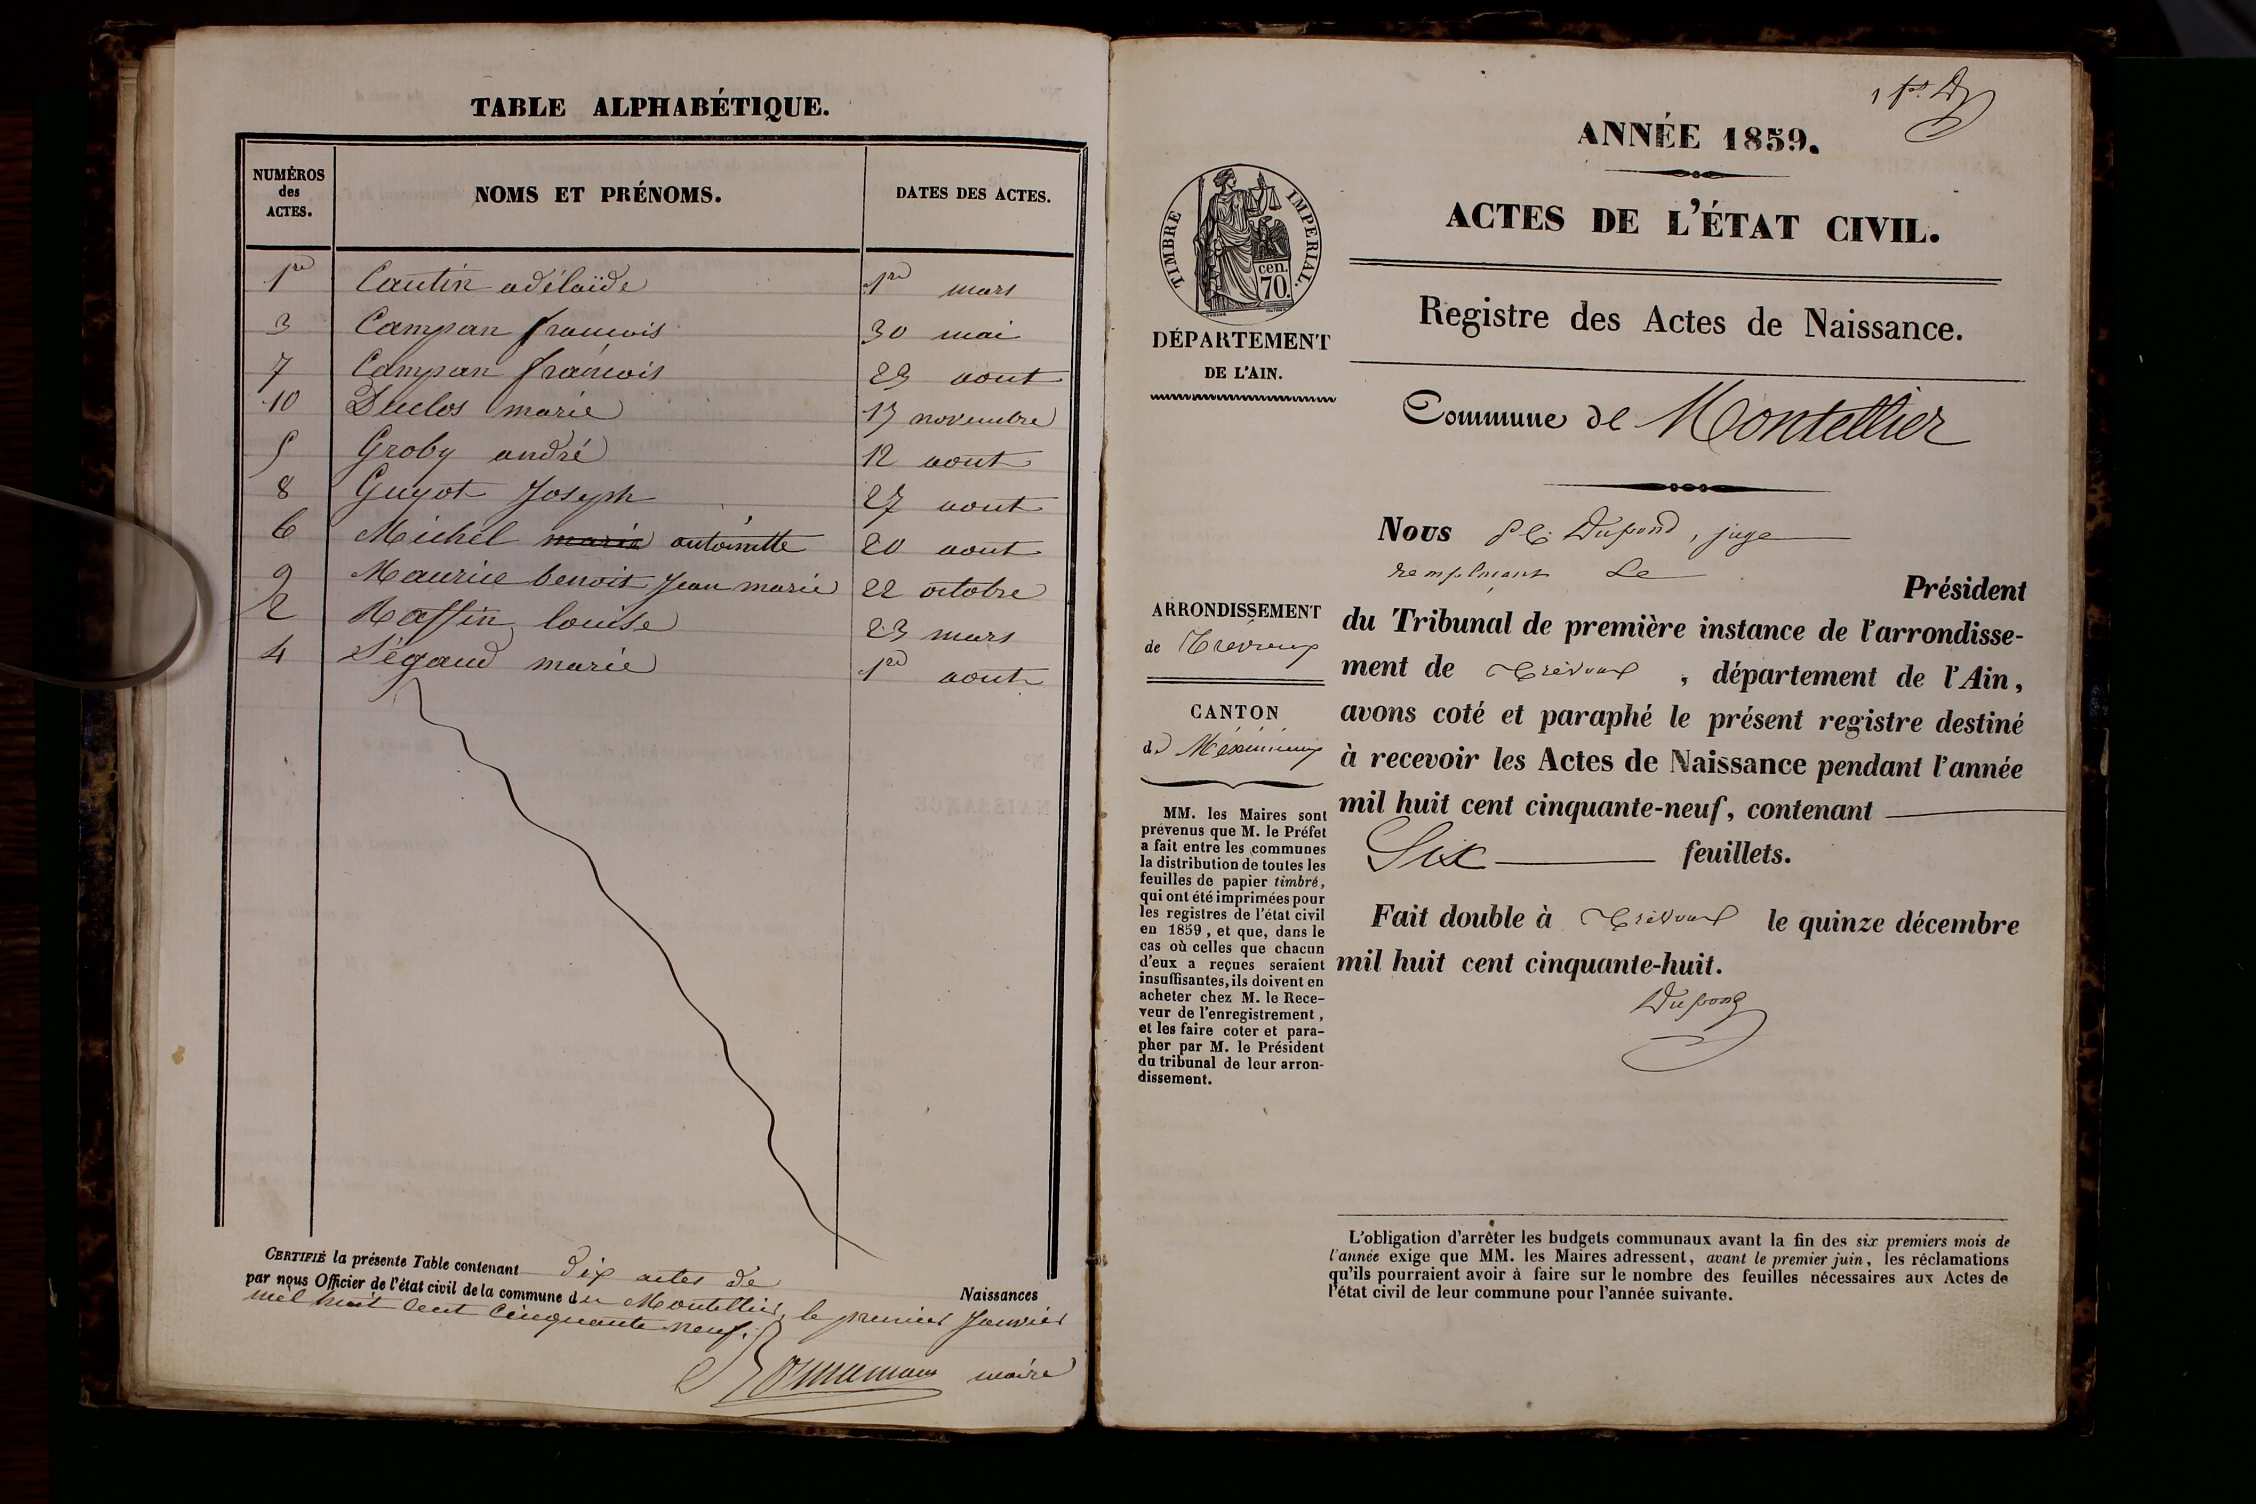 TABLE ALPHABÉTIQUE.
NUMÉROS des ACTES.
NOMS ET PRÉNOMS.
DATES DES ACTES.
1re Cantin adélaïde 1er mars
3 Campan francois 30 mai
7 Campan francois 23 aout
10 Duclos marie 17 novembre
5 Groby andré 12 aout
8 Guyot Joseph 27 aout
6 Michel marie antoinette 20 aout
9 Maurice benoit Jean marie 22 octobre
2 Raffin louise 23 mars
4 Ségaud marie 1er aout
CERTIFIÉ la présente Table contenant dix actes de Naissances
par nous Officier de l'état civil de la commune du Montellier, le premier Janvier
mil huit cent cinquante neuf.
maire
ANNÉE 1859.
ACTES DE L'ÉTAT CIVIL.
Registre des Actes de Naissance.
Commune de Montellier
TIMBRE IMPERIAL.
cen.
70.
DÉPARTEMENT
DE L'AIN.
ARRONDISSEMENT
de Trévoux
CANTON
de Méximieux
MM. les Maires sont
prévenus que M. le Préfet
a fait entre les communes
la distribution de toutes les
feuilles de papier timbré,
qui ont été imprimées pour
les registres de l'état civil
en 1859, et que, dans le
cas où celles que chacun
d'eux a reçues seraient
insuffisantes, ils doivent en
acheter chez M. le Rece-
veur de l'enregistrement,
et les faire coter et para-
pher par M. le Président
du tribunal de leur arron-
dissement.
Nous Dupond, juge
remplaçant Le
Président
du Tribunal de première instance de l'arrondisse-
ment de Trévoux, département de l'Ain,
avons coté et paraphé le présent registre destiné
à recevoir les Actes de Naissance pendant l'année
mil huit cent cinquante-neuf, contenant
Six feuillets.
Fait double à Trévoux le quinze décembre
mil huit cent cinquante-huit.
Dupond
L'obligation d'arrêter les budgets communaux avant la fin des six premiers mois de
l'année exige que MM. les Maires adressent, avant le premier juin, les réclamations
qu'ils pourraient avoir à faire sur le nombre des feuilles nécessaires aux Actes de
l'état civil de leur commune pour l'année suivante.